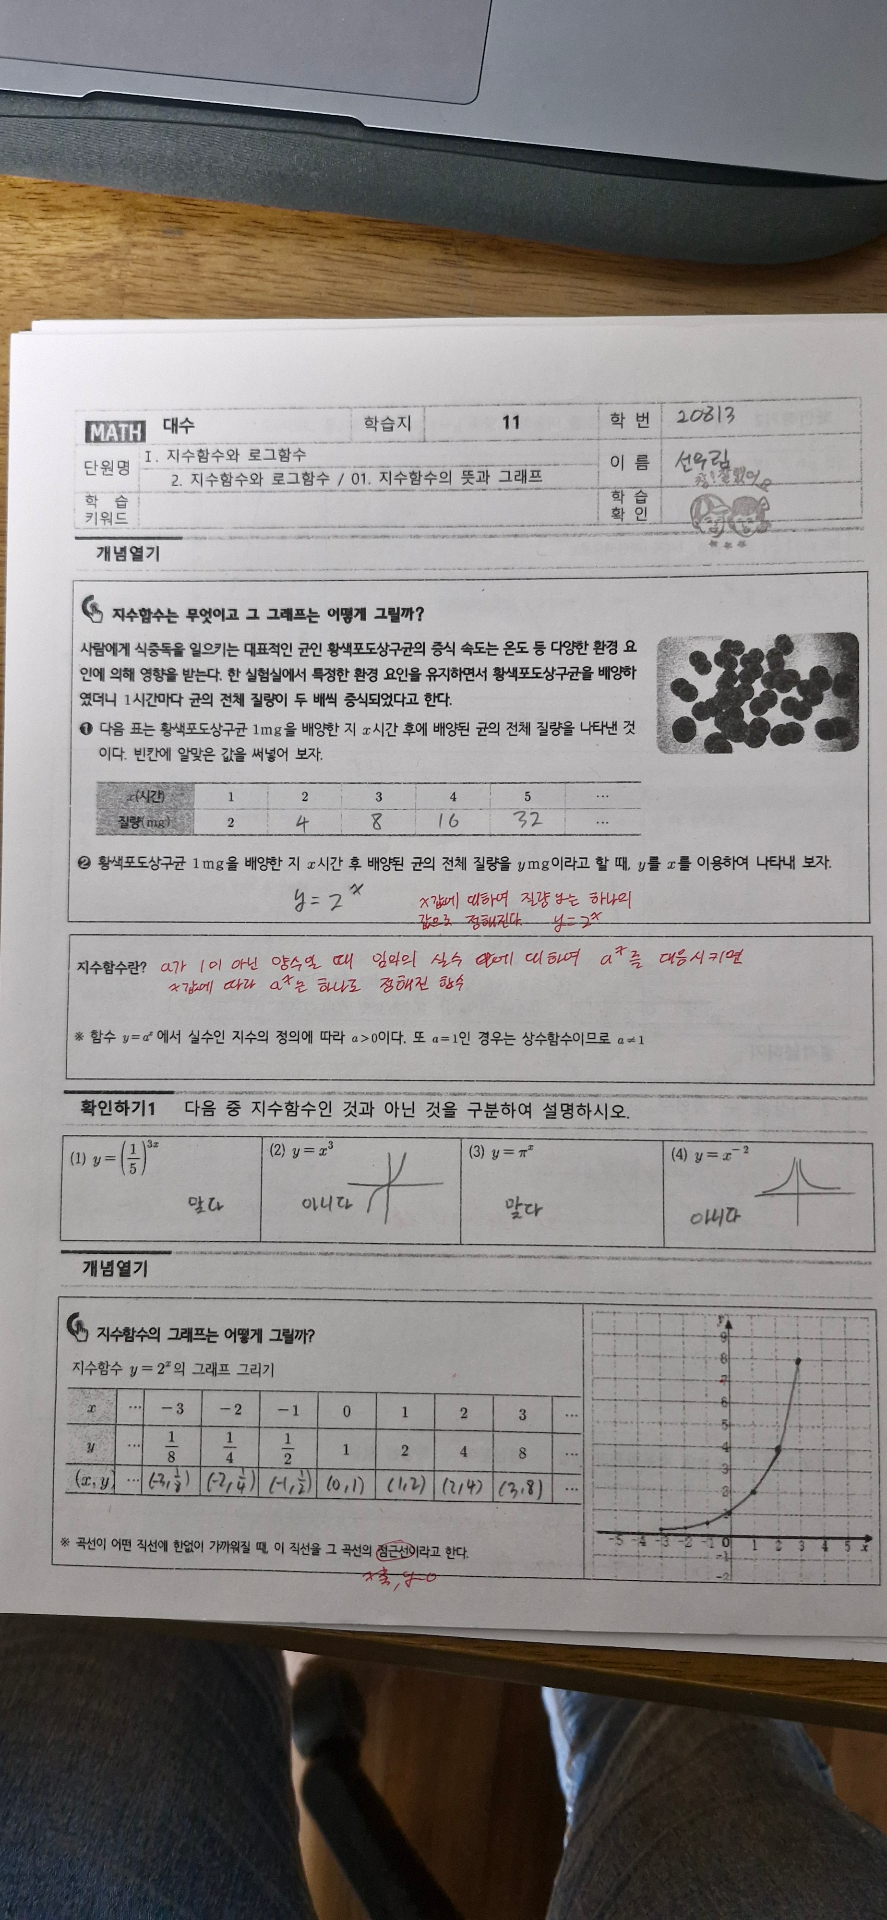 MATH 대수 학습지 11 학 번 20813
단원명 Ⅰ. 지수함수와 로그함수 이 름 선우림
2. 지수함수와 로그함수 / 01. 지수함수의 뜻과 그래프
참! 잘했어요
학 습 키워드 학 습 확 인
개념열기
지수함수는 무엇이고 그 그래프는 어떻게 그릴까?
사람에게 식중독을 일으키는 대표적인 균인 황색포도상구균의 증식 속도는 온도 등 다양한 환경 요
인에 의해 영향을 받는다. 한 실험실에서 특정한 환경 요인을 유지하면서 황색포도상구균을 배양하
였더니 1시간마다 균의 전체 질량이 두 배씩 증식되었다고 한다.
❶ 다음 표는 황색포도상구균 1mg을 배양한 지 x시간 후에 배양된 균의 전체 질량을 나타낸 것
이다. 빈칸에 알맞은 값을 써넣어 보자.
x(시간) 1 2 3 4 5 …
질량(mg) 2 4 8 16 32 …
❷ 황색포도상구균 1mg을 배양한 지 x시간 후 배양된 균의 전체 질량을 y mg이라고 할 때, y를 x를 이용하여 나타내 보자.
y=2^x
x값에 대하여 질량 y는 하나의
값으로 정해진다. y=2^x
지수함수란? a가 1이 아닌 양수일 때 임의의 실수 에 대하여 a^x를 대응시키면
x값에 따라 a^x는 하나로 정해진 함수
※ 함수 y=a^x에서 실수인 지수의 정의에 따라 a>0이다. 또 a=1인 경우는 상수함수이므로 a≠1
확인하기1 다음 중 지수함수인 것과 아닌 것을 구분하여 설명하시오.
(1) y=(1/5)^3x (2) y=x^3 (3) y=π^x (4) y=x^-2
맞다 아니다 맞다 아니다
개념열기
지수함수의 그래프는 어떻게 그릴까?
지수함수 y=2^x의 그래프 그리기
x … -3 -2 -1 0 1 2 3 …
y … 1/8 1/4 1/2 1 2 4 8 …
(x,y) … (-3,1/8) (-2,1/4) (-1,1/2) (0,1) (1,2) (2,4) (3,8) …
※ 곡선이 어떤 직선에 한없이 가까워질 때, 이 직선을 그 곡선의 점근선이라고 한다.
x축, y=0
y
9
8
7
6
5
4
3
2
1
-5 -4 -3 -2 -1 0 1 2 3 4 5 x
-1
-2